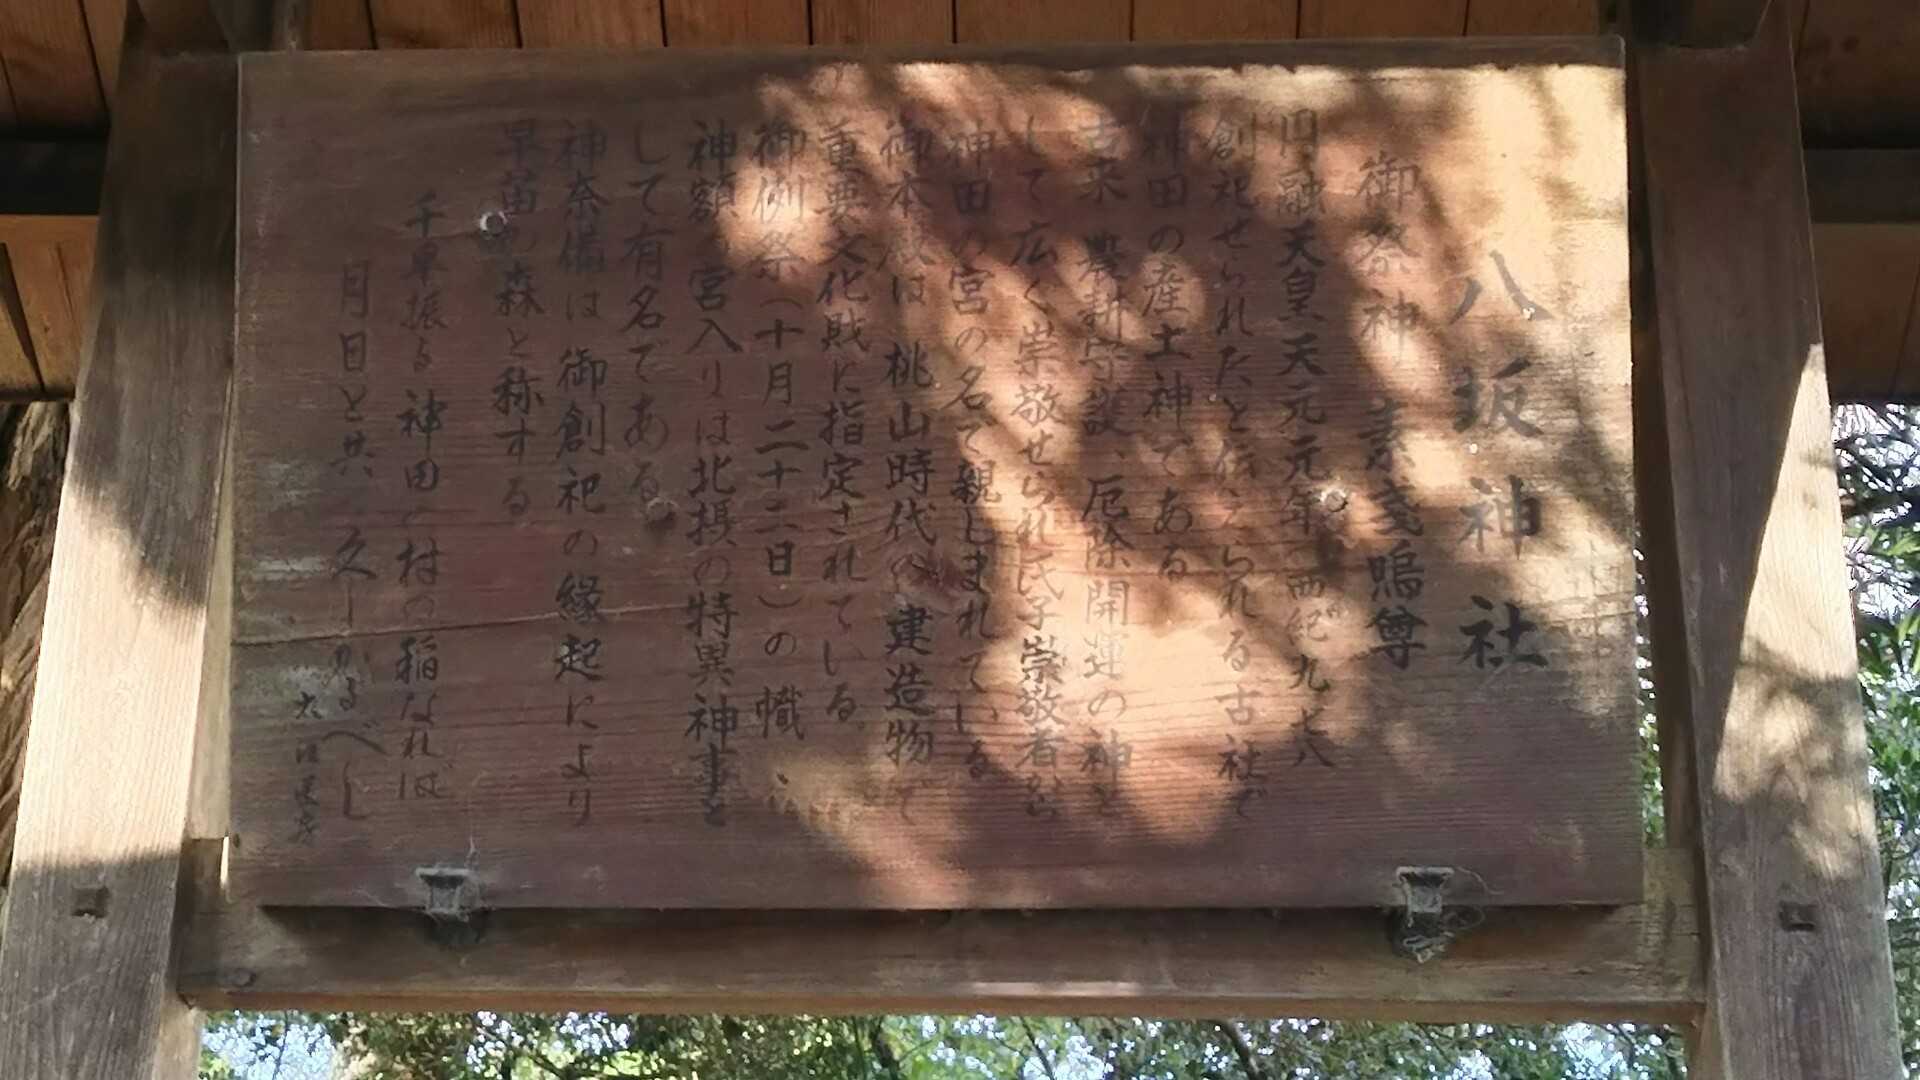 八坂神社
御祭神 素戔嗚尊
円融天皇 天元元年(西紀九七八
創祀せられたと伝えられる古社で
神田の産土神である
古来 農耕守護、厄除開運の神と
して広く崇敬せられ氏子崇敬者から
神田の宮の名で親しまれている
御本殿は 桃山時代の建造物で
重要文化財に指定されている
御例祭(十月二十二日)の 幟
神額 宮入りは北摂の特異神事と
して有名である
神奈備は 御創祀の縁起により
早苗の森と称する
千早振る 神田の村の稲なれば
月日と共に久しかるべし